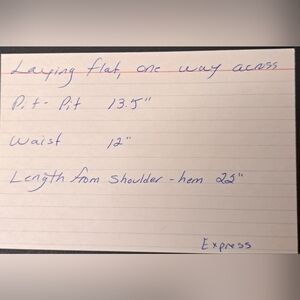 Laying flat, one way across
Pit - Pit 13.5"
Waist 12"
Length from shoulder - hem 22"
Express